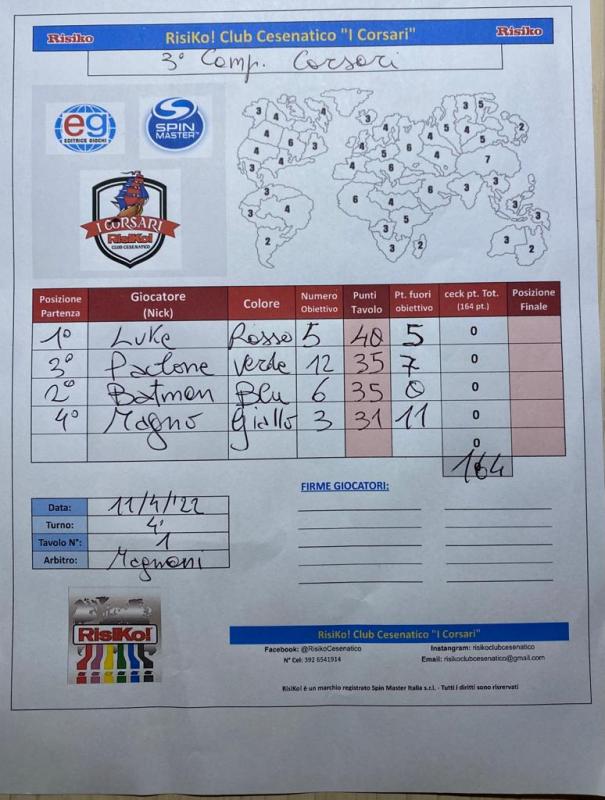 RisiKo RisiKo! Club Cesenatico "I Corsari" RisiKo
3° Comp. Corsari
eg
EDITRICE GIOCHI
SPIN
MASTER
I CORSARI
RisiKo!
CLUB CESENATICO
Posizione Partenza Giocatore (Nick) Colore Numero Obiettivo Punti Tavolo Pt. fuori obiettivo ceck pt. Tot. (164 pt.) Posizione Finale
1° Luke Rosso 5 40 5 0
3° Paclone verde 12 35 7 0
2° Batman Blu 6 35 0 0
4° Magno Giallo 3 31 11 0
0
164
FIRME GIOCATORI:
Data: 11/4/'22
Turno: 4°
Tavolo N°: 1
Arbitro: Magnani
RisiKo!
RisiKo! Club Cesenatico "I Corsari"
Facebook: @RisikoCesenatico Instangram: risikoclubcesenatico
N° Cel: 392 6541914 Email: risikoclubcesenatico@gmail.com
RisiKo! è un marchio registrato Spin Master Italia s.r.l. - Tutti i diritti sono riservati